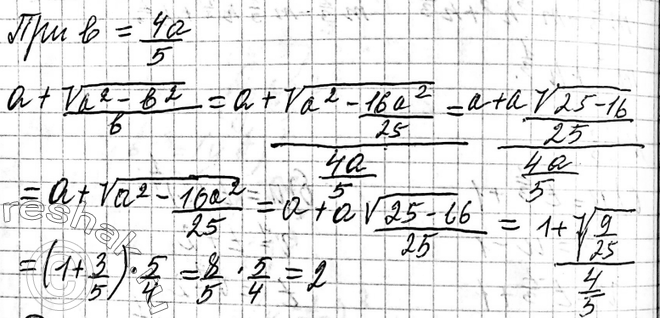 При в = 4a/5
a + √(a² - в²)/в = a + √(a² - 16a²/25)/(4a/5) = a + a√((25-16)/25)/(4a/5)
= a + √(a² - 16a²/25) = a + a√((25-16)/25) = (1 + √(9/25))/(4/5)
= (1 + 3/5) · 5/4 = 8/5 · 5/4 = 2
reshak.ru